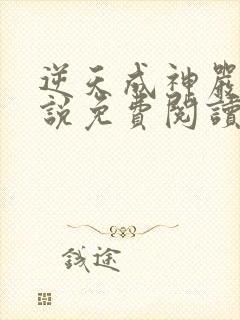 逆天成神嚴
說免費閱讀
錢途